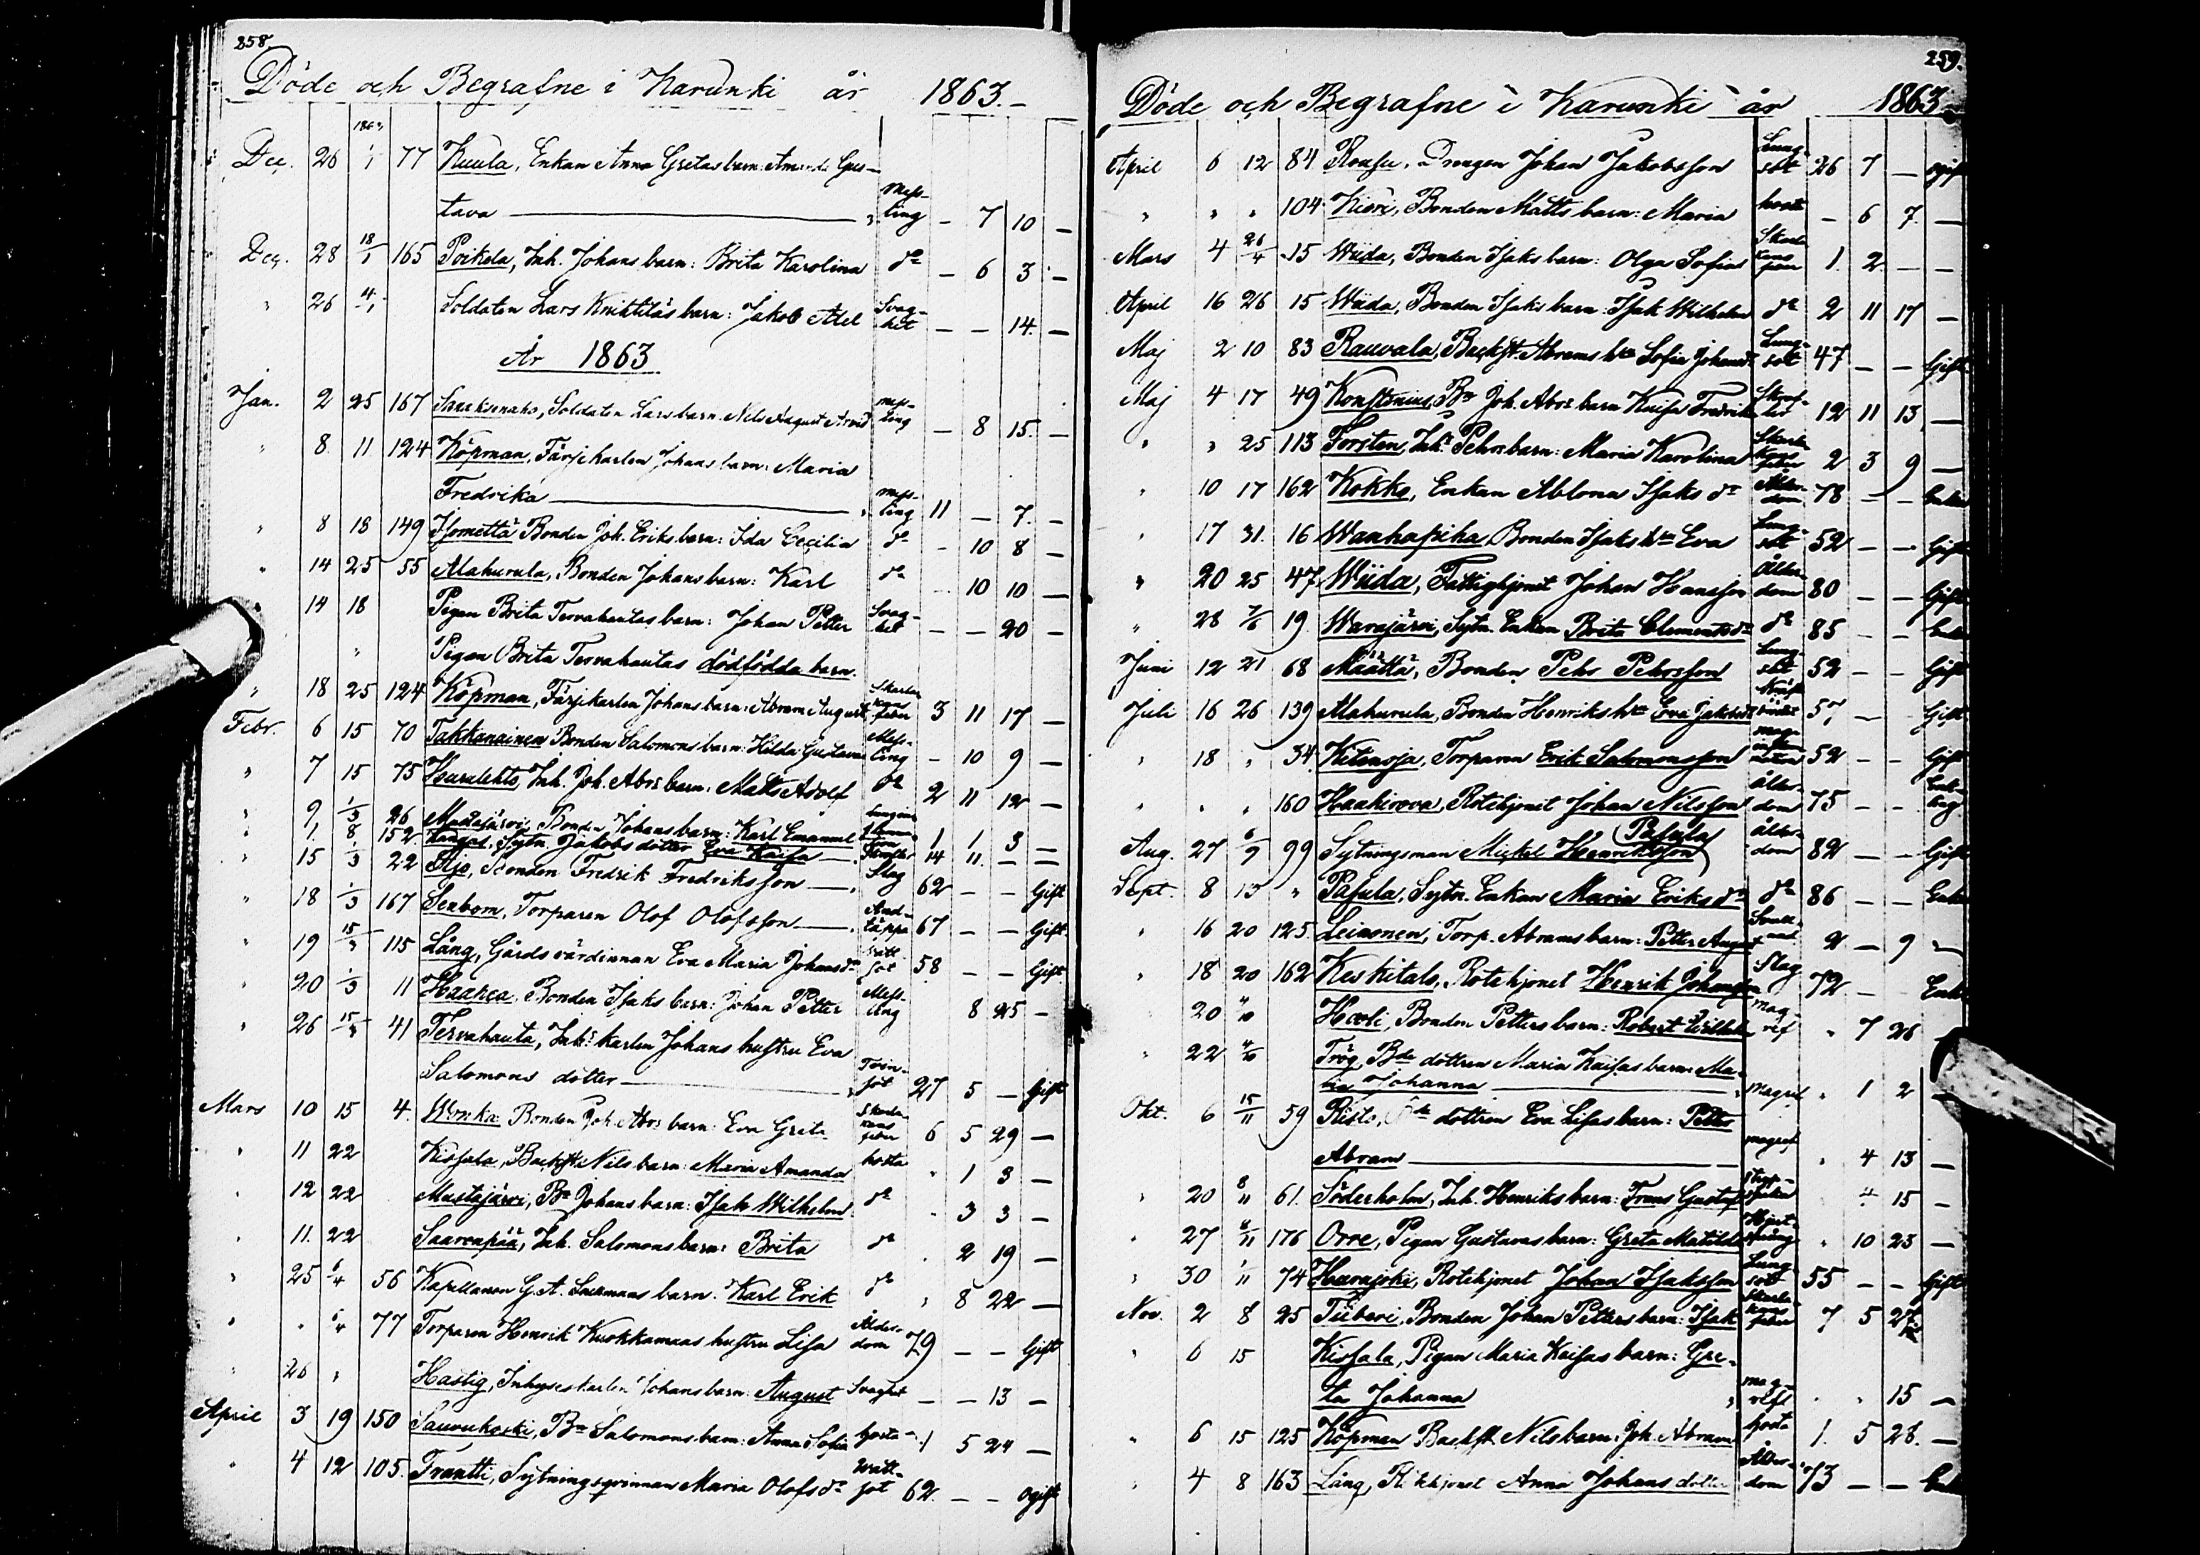 258.
Döde och Begrafne i Karunki år 1863.
1863
Dec. 26 1/1 77 Kuula, Enkan Anna Gretas barn: Amanda Gus-
tava — Mess-ling — 7 10 —
Dec. 28 18/1 165 Poikela, Inh. Johans barn: Brita Karolina do — 6 3 —
" 26 4/1 Soldaten Lars Knihtiläs barn: Jakob Abel Svag-het — — 14. —
År 1863
Jan. 2 25 167 Soldaten Lars barn: Nils August Mess-ling — 8 15. —
" 8 11 124 Köpman, Färjekarlen Johans barn: Maria
Fredrika — Mess-ling 11 — 7. —
" 8 18 149 Ylomettä Bonden Joh. Eriks barn: Ida Cecilia do — 10 8 —
" 14 25 55 Alahurula, Bonden Johans barn: Karl do — 10 10 —
" 14 18 Pigan Brita Tervahautas barn: Johan Petter Svag-het — — 20 —
" Pigan Brita Tervahautas dödfödda barn.
" 18 25 124 Köpman, Färjekarlen Johans barn: Abram August Skarla-kans feber 3 11 17 —
Febr. 6 15 70 Takkanainen Bonden Salomons barn: Hilda Gustava Mess-ling — 10 9 —
" 7 15 75 Inh. Joh. Abrs barn: Matts Adolf do 2 11 12 —
" 9 1/3 26 Mustajärvi, Bonden Johans barn: Karl Emanuel 1 1 3 —
" 1 8 152 Kangas, Sytn. Jakobs dotter Eva Kaisa — 14 11 — —
" 15 1/3 22 Bonden Fredrik Fredriksson — Slag 62 — — Gift
" 18 1/3 167 Senbom, Torparen Olof Olofsson — And-täppa 67 — — Gift.
" 19 15/3 115 Lång, Gårdsvärdinnan Eva Maria Johansdr 58 — — Gift.
" 20 1/3 11 Haapea. Bonden Isaks barn: Johan Petter Mess-ling 8 25 —
" 26 15/3 41 Tervahauta, Inhs karlen Johans hustru Eva
Salomons dotter — 27 5 — Gift
Mars 10 15 4. Wonka Bonden Joh. Abrs barn: Eva Greta Skarla-kans feber 6 5 29 —
" 11 22 Kissala, Backst. Nils barn: Maria Amanda hosta " 1 3 —
" 12 22 Mustajärvi, Bn Johans barn: Isak Wilhelm do " 3 3 —
" 11. 22 Saarenpää, Inh. Salomons barn: Brita do " 2 19 —
" 25 6/4 56 Kapellanen G. A. barn. Karl Erik do " 8 22 —
" " 6/4 77 Torparen Henrik Kuokkamaas hustru Lisa Ålder-dom 79 — — Gift
" 26 " Hastig, Inhyseskarlen Johans barn: August Svaghet — — 13 —
April 3 19 150 Bn Salomons barn: Anna Sofia hosta 1 5 24 —
" 4 12 105. Frantti, Sytningsqvinnan Maria Olofsdr Watt-sot 62. — — Ogift
259.
Döde och Begrafne i Karunki år 1863
April 6 12 84 Rousu, Drengen Johan Jakobsson Lung-sot 26 7 — ogift
" " " 104 Kiöri, Bonden Matts barn: Maria hosta — 6 7. —
Mars 4 26/4 15 Wiida, Bonden Isaks barn: Olga Sofia Skarla-kans feber 1. 2 — —
April 16 26 15 Wiida, Bonden Isaks barn: Isak Wilhelm do 2 11 17 —
Maj 2 10 83 Rauvala, Backst. Abrams hu Sofia Johansd. Lung-sot 47 — — Gift
Maj 4 17 49 Bn Joh. Abrs barn Kaisa Fredrika 12 11 13 —
" " 25 113 Forsten, Inhs Pehrs barn: Maria Karolina Skarla-kans feber 2 3 9 —
" 10 17 162 Kokko, Enkan Ablona Isaks dr Ålder-dom 78 — — Enka
" 17 31. 16 Wanhapiha Bonden Isaks hu Eva Lung-sot 52 — — Gift
" 20 25 47 Wiida, Fattighjonet Johan Hansson Ålder-dom 80 — — Gift
" 28 7/6 19. Warajärvi, Sytn. Enkan Brita Clementsdr do 85 — — Enka
Juni 12 21 68 Määttä, Bonden Pehr Pehrsson Lung-sot 52 — — Gift
Juli 16 26 139 Alahurula, Bonden Henriks hu Eva Jakobsd. 57 — — Gift
" 18 " 34. Torparen Erik Salomonsson 52 — — Gift
" " " 160 Haahivova, Rotehjonet Johan Nilsson ålder-dom 75 — —
Aug. 27 6/9 99 Sytningsman Mickel Henriksson (Pasula) ålder-dom 82 — — Gift
Sept. 8 13 " Pasula, Sytn. Enkan Maria Eriksdr do 86 — — Enka
" 16 20 125 Leinonen, Torp. Abrams barn: Petter August 2 — 9 —
" 18 20 162 Keskitalo, Rotehjonet Henrik Johansson Slag 72. —
" 20 4/10 Hooli, Bonden Petters barn: Robert Wilhelm Mag-ref " 7 26 —
" 22 4/10 Frög, Bde dottren Maria Kaisas barn: Ma-
ria Johanna — magref " 1 2
Okt. 6 15/11 59 Risto, Bde dottren Eva Lisas barn: Petter
Abram — magref " 4 13 —
" 20 8/11 61. Söderholm, Inh. Henriks barn: Frans Gustaf " 4 15 —
" 27 8/11 176 Orre, Pigan Gustavas barn: Greta Matilda " 10 23 —
" 30 1/11 74 Haarajoki, Rotehjonet Johan Isaksson Lung-sot 55 — — Gift
Nov. 2 8 25 Tiiberi, Bonden Johan Petters barn: Isak Skarla-kans feber 7 5 27
" 6 15 Kissala, Pigan Maria Kaisas barn: Gre-
ta Johanna " mag-ref " " 15 —
" 6 15 125 Köpman Backst. Nils barn: Joh. Abram hosta 1. 5 28. —
" 4 8 163 Lång, Rotehjonet Anna Johans dotter Ålder-dom 73 — — Enka